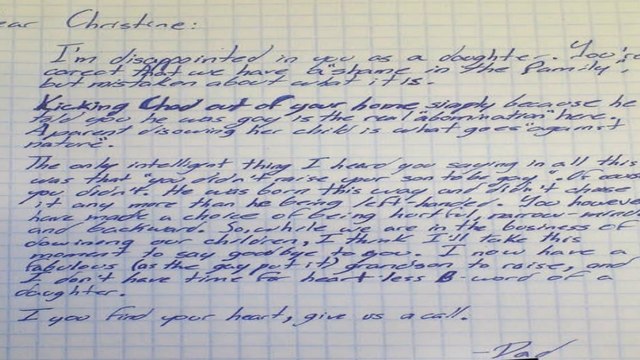 ear Christine:
I'm disappointed in you as a daughter. You're
correct that we have a "shame in the family",
but mistaken about what it is.
Kicking Chad out of your home simply because he
told you he was gay is the real "abomination" here.
A parent disowning her child is what goes "against
nature".
The only intelligent thing I heard you saying in all this
was that "you didn't raise your son to be gay". Of course
you didn't. He was born this way and didn't choose
it any more than he being left-handed. You however
have made a choice of being hurtful, narrow-minded
and backward. So, while we are in the business of
disowning our children, I think I'll take this
moment to say goodbye to you. I now have a
fabulous (as the gay put it) grandson to raise, and
I don't have time for heartless B-word of a
daughter.
I you find your heart, give us a call.
-Dad